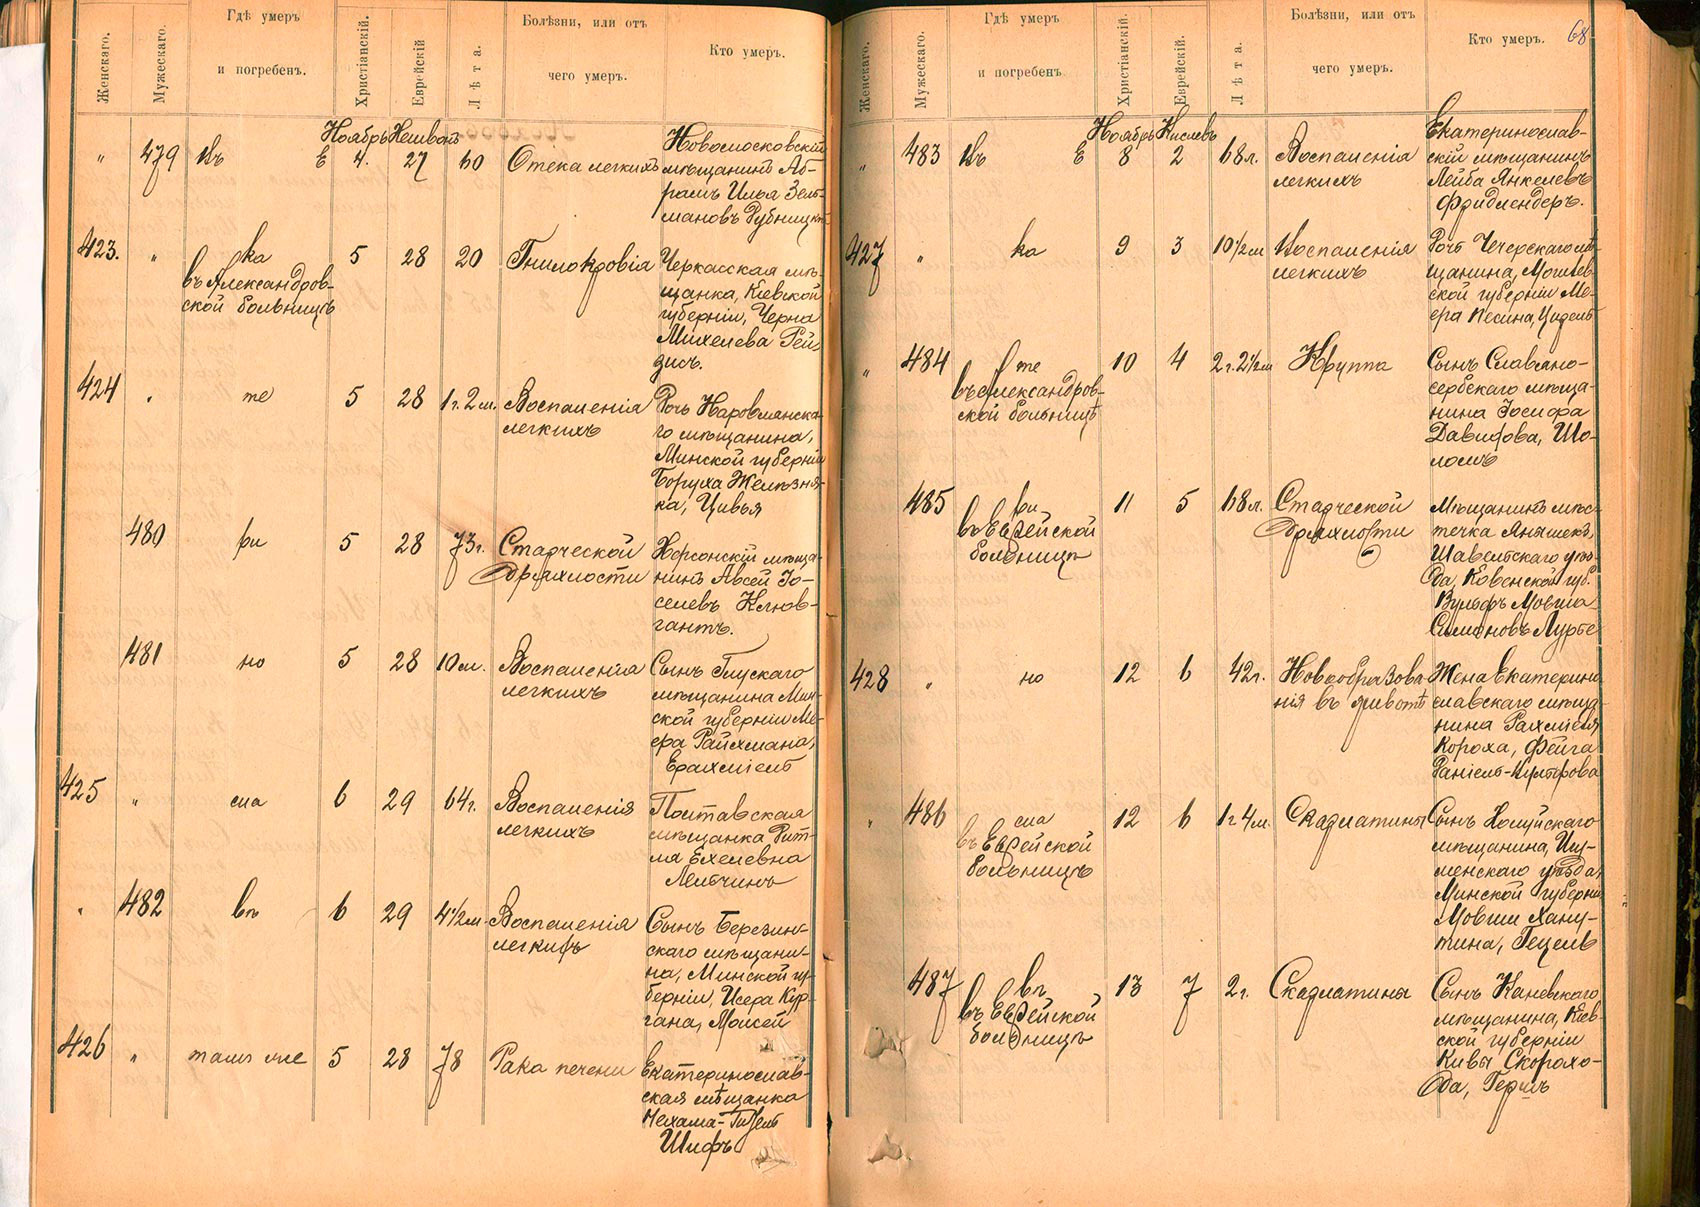 Женскаго.
Мужескаго.
Гдѣ умеръ
и погребенъ.
Христіанскій.
Еврейскій
Лѣта.
Болѣзни, или отъ
чего умеръ.
Кто умеръ.
Ноябрь
" 479 4. 27 60 Отека легкихъ
Новомосковскій
мѣщанинъ Аб-
рамъ Илья Зель-
мановъ Рубницкій
423. " ка 5 28 20 Гнилокровія
въ Александров-
ской больницѣ
Черкасская мѣ-
щанка, Кіевской
губерніи, Черна
Михелева Рей-
зисъ.
424 " те 5 28 1 г. 2 м. Воспаленія
легкихъ
Дочь Наровлянска-
го мѣщанина,
Минской губерніи
Боруха Желѣзня-
ка, Цивья
480 ри 5 28 73 г. Старческой
дряхлости
Херсонскій мѣща-
нинъ Авсей Іо-
селевъ
481 но 5 28 10 м. Воспаленія
легкихъ
Сынъ Глускаго
мѣщанина Мин-
ской губерніи Ме-
ера Райхмана,
Ерахміель
425 " сла 6 29 64 г. Воспаленія
легкихъ
Полтавская
мѣщанка
Ехелевна
482 въ 6 29 4 1/2 м. Воспаленія
легкихъ
Сынъ Березин-
скаго мѣщани-
на, Минской гу-
берніи, Исера Кур-
гана, Моисей
426 " тамъ же 5 28 78 Рака печени
Екатеринослав-
ская мѣщанка
Нехама-
Шифъ
Женскаго.
Мужескаго.
Гдѣ умеръ
и погребенъ
Христіанскій.
Еврейскій.
Лѣта.
Болѣзни, или отъ
чего умеръ.
Кто умеръ.
68
Ноябрь Кислевъ
" 483 8 2 68 л. Воспаленія
легкихъ
Екатеринослав-
скій мѣщанинъ
Лейба Янкелевъ
Фридлендеръ.
427 " ка 9 3 10 1/2 м Воспаленія
легкихъ
Дочь Чечерскаго мѣ-
щанина, Могилев-
ской губерніи Ме-
ера Песина,
" 484 те 10 4 2 г. 2 1/2 м Круппа
въ Александров-
ской больницѣ
Сынъ Славяно-
сербскаго мѣща-
нина Іосифа
Давидова, Шо-
ломъ
485 ри 11 5 68 л. Старческой
дряхлости
въ Еврейской
больницѣ
Мѣщанинъ мѣс-
течка Янишекъ,
Шавельскаго уѣз-
да, Ковенской губ.
Вульфъ Мовша
Симоновъ Лурье
428 " но 12 6 42 г. Новообразова-
нія въ животѣ
Жена Екатерино-
славскаго мѣща-
нина Рахміеля
Короха, Фейга
486 сла 12 6 1 г 4 м. Скарлатины
въ Еврейской
больницѣ
Сынъ
мѣщанина, Игу-
менскаго уѣзда,
Минской губерніи
Мовши Хану-
тина, Гецель
487 въ 13 7 2 г. Скарлатины
въ Еврейской
больницѣ
Сынъ Каневскаго
мѣщанина, Кіев-
ской губерніи
Кивы Скорохо-
да, Гершъ